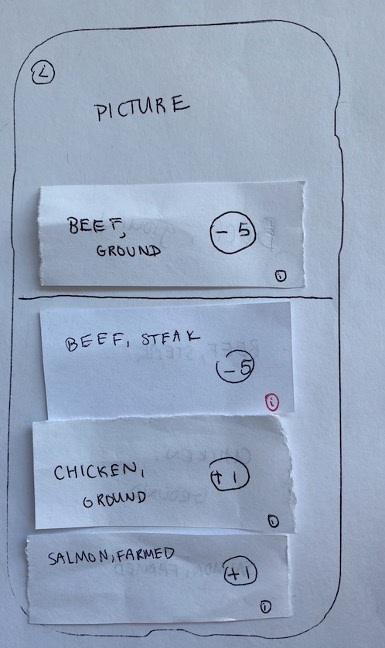 <
PICTURE
BEEF,
GROUND
-5
i
BEEF, STEAK
-5
i
CHICKEN,
GROUND
+1
i
SALMON, FARMED
+1
i